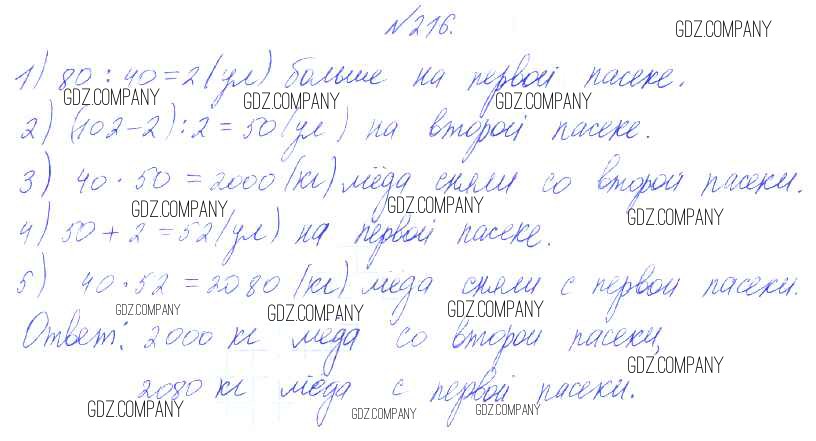 №216.
GDZ.COMPANY
1) 80 : 40 = 2 (ул) больше на первой пасеке.
GDZ.COMPANY GDZ.COMPANY GDZ.COMPANY
2) (102-2) : 2 = 50 (ул) на второй пасеке.
3) 40 · 50 = 2000 (кг) мёда сняли со второй пасеки.
GDZ.COMPANY GDZ.COMPANY GDZ.COMPANY
4) 50 + 2 = 52 (ул) на первой пасеке.
5) 40 · 52 = 2080 (кг) мёда сняли с первой пасеки.
GDZ.COMPANY GDZ.COMPANY GDZ.COMPANY
Ответ: 2000 кг меда со второй пасеки,
GDZ.COMPANY
2080 кг мёда с первой пасеки.
GDZ.COMPANY GDZ.COMPANY GDZ.COMPANY